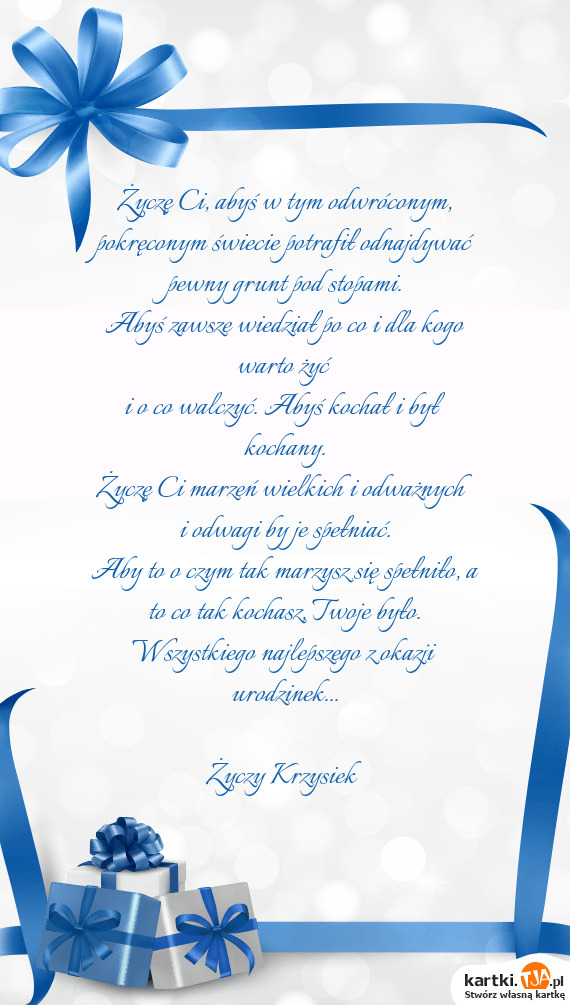 Życzę Ci, abyś w tym odwróconym,
pokręconym świecie potrafił odnajdywać
pewny grunt pod stopami.
Abyś zawsze wiedział po co i dla kogo
warto żyć
i o co walczyć. Abyś kochał i był
kochany.
Życzę Ci marzeń wielkich i odważnych
i odwagi by je spełniać.
Aby to o czym tak marzysz się spełniło, a
to co tak kochasz, Twoje było.
Wszystkiego najlepszego z okazji
urodzinek...
Życzy Krzysiek
kartki.TJA.pl
Stwórz własną kartkę